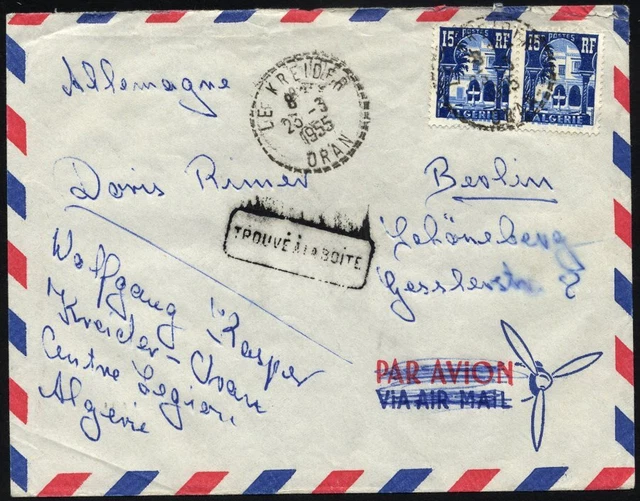 Allemagne
LE KREIDER
8H
25 -3
1955
ORAN
15F POSTES RF
ALGERIE
15F POSTES RF
ALGERIE
Doris
Berlin
Schöneberg
Gesslerstr.
TROUVÉ À LA BOITE
Wolfgang Kasper
Kreider - Oran
Centre Legion
Algerie
PAR AVION
VIA AIR MAIL